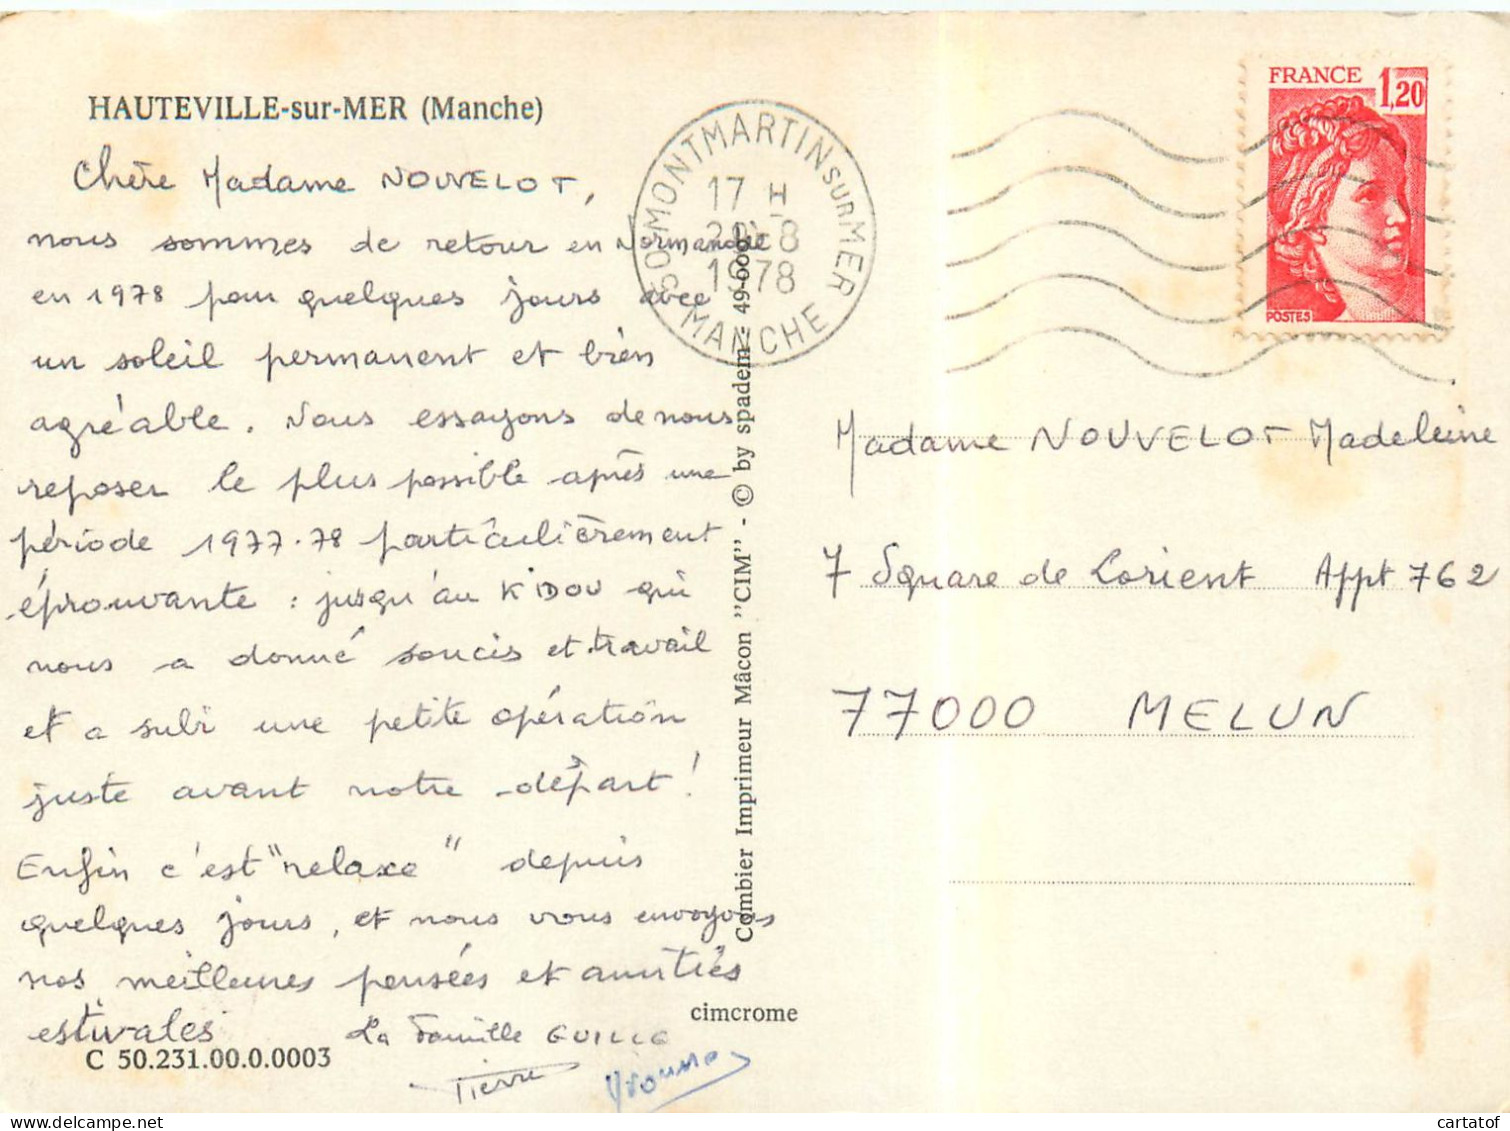 HAUTEVILLE-sur-MER (Manche)
Chère Madame NOUVELOT,
nous sommes de retour en Normandie
en 1978 pour quelques jours avec
un soleil permanent et bien
agréable. Nous essayons de nous
reposer le plus possible après une
période 1977-78 particulièrement
éprouvante : jusqu'au KIDOU qui
nous a donné soucis et travail
et a subi une petite opération
juste avant notre départ !
Enfin c'est "relaxe" depuis
quelques jours, et nous vous envoyons
nos meilleures pensées et amitiés
estivales La famille
Pierre
C 50.231.00.0.0003
cimcrome
Combier Imprimeur Mâcon "CIM" - © by spadem - 49-000
50 MONTMARTIN SUR MER
17 H
8
1978
MANCHE
FRANCE 1,20
POSTES
Madame NOUVELOT Madeleine
7 Square de Lorient Appt 762
77000 MELUN
cartatof